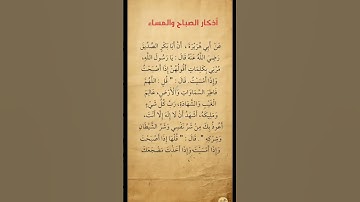 أذكار الصباح والمساء
عَنْ أَبِي هُرَيْرَةَ ، أَنَّ أَبَا بَكْرٍ الصِّدِّيقَ
رَضِيَ اللَّهُ عَنْهُ قَالَ : يَا رَسُولَ اللَّهِ،
مُرْنِي بِكَلِمَاتٍ أَقُولُهُنَّ إِذَا أَصْبَحْتُ
وَإِذَا أَمْسَيْتُ. قَالَ : " قُلِ : اللَّهُمَّ
فَاطِرَ السَّمَاوَاتِ وَالْأَرْضِ، عَالِمَ
الْغَيْبِ وَالشَّهَادَةِ، رَبَّ كُلِّ شَيْءٍ
وَمَلِيكَهُ، أَشْهَدُ أَنْ لَا إِلَهَ إِلَّا أَنْتَ،
أَعُوذُ بِكَ مِنْ شَرِّ نَفْسِي وَشَرِّ الشَّيْطَانِ
وَشِرْكِهِ ". قَالَ : " قُلْهَا إِذَا أَصْبَحْتَ
وَإِذَا أَمْسَيْتَ وَإِذَا أَخَذْتَ مَضْجَعَكَ